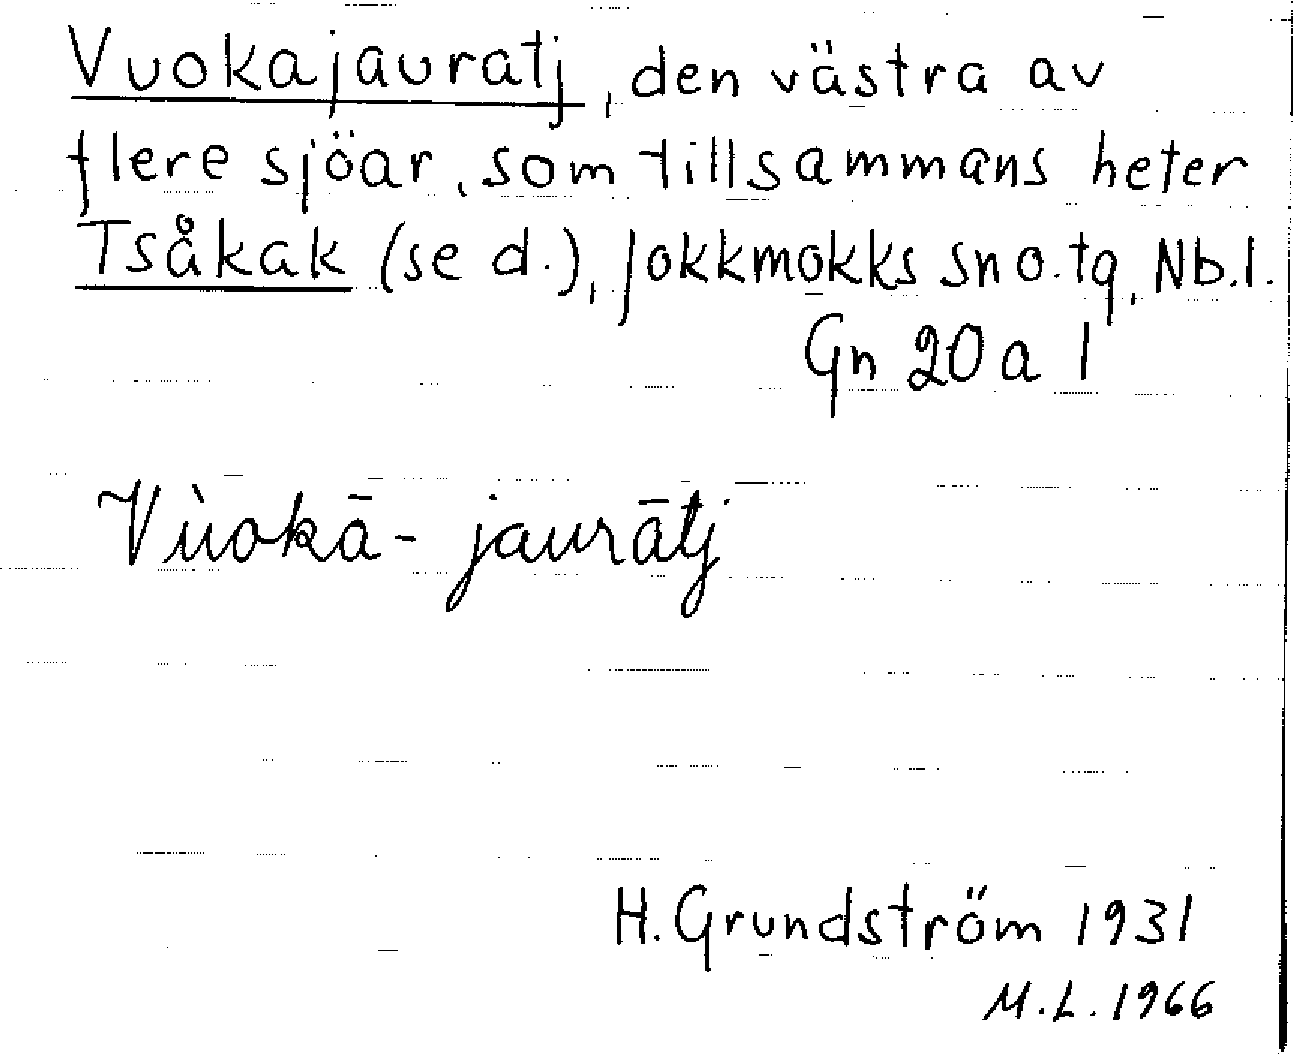 Vuokajauratj, den västra av
flere sjöar, som tillsammans heter
Tsåkak (se d.), Jokkmokks sn o. tg, Nb. l.
Gn 20 a 1
Vùokā- jaurātj
H. Grundström 1931
M.L. 1966